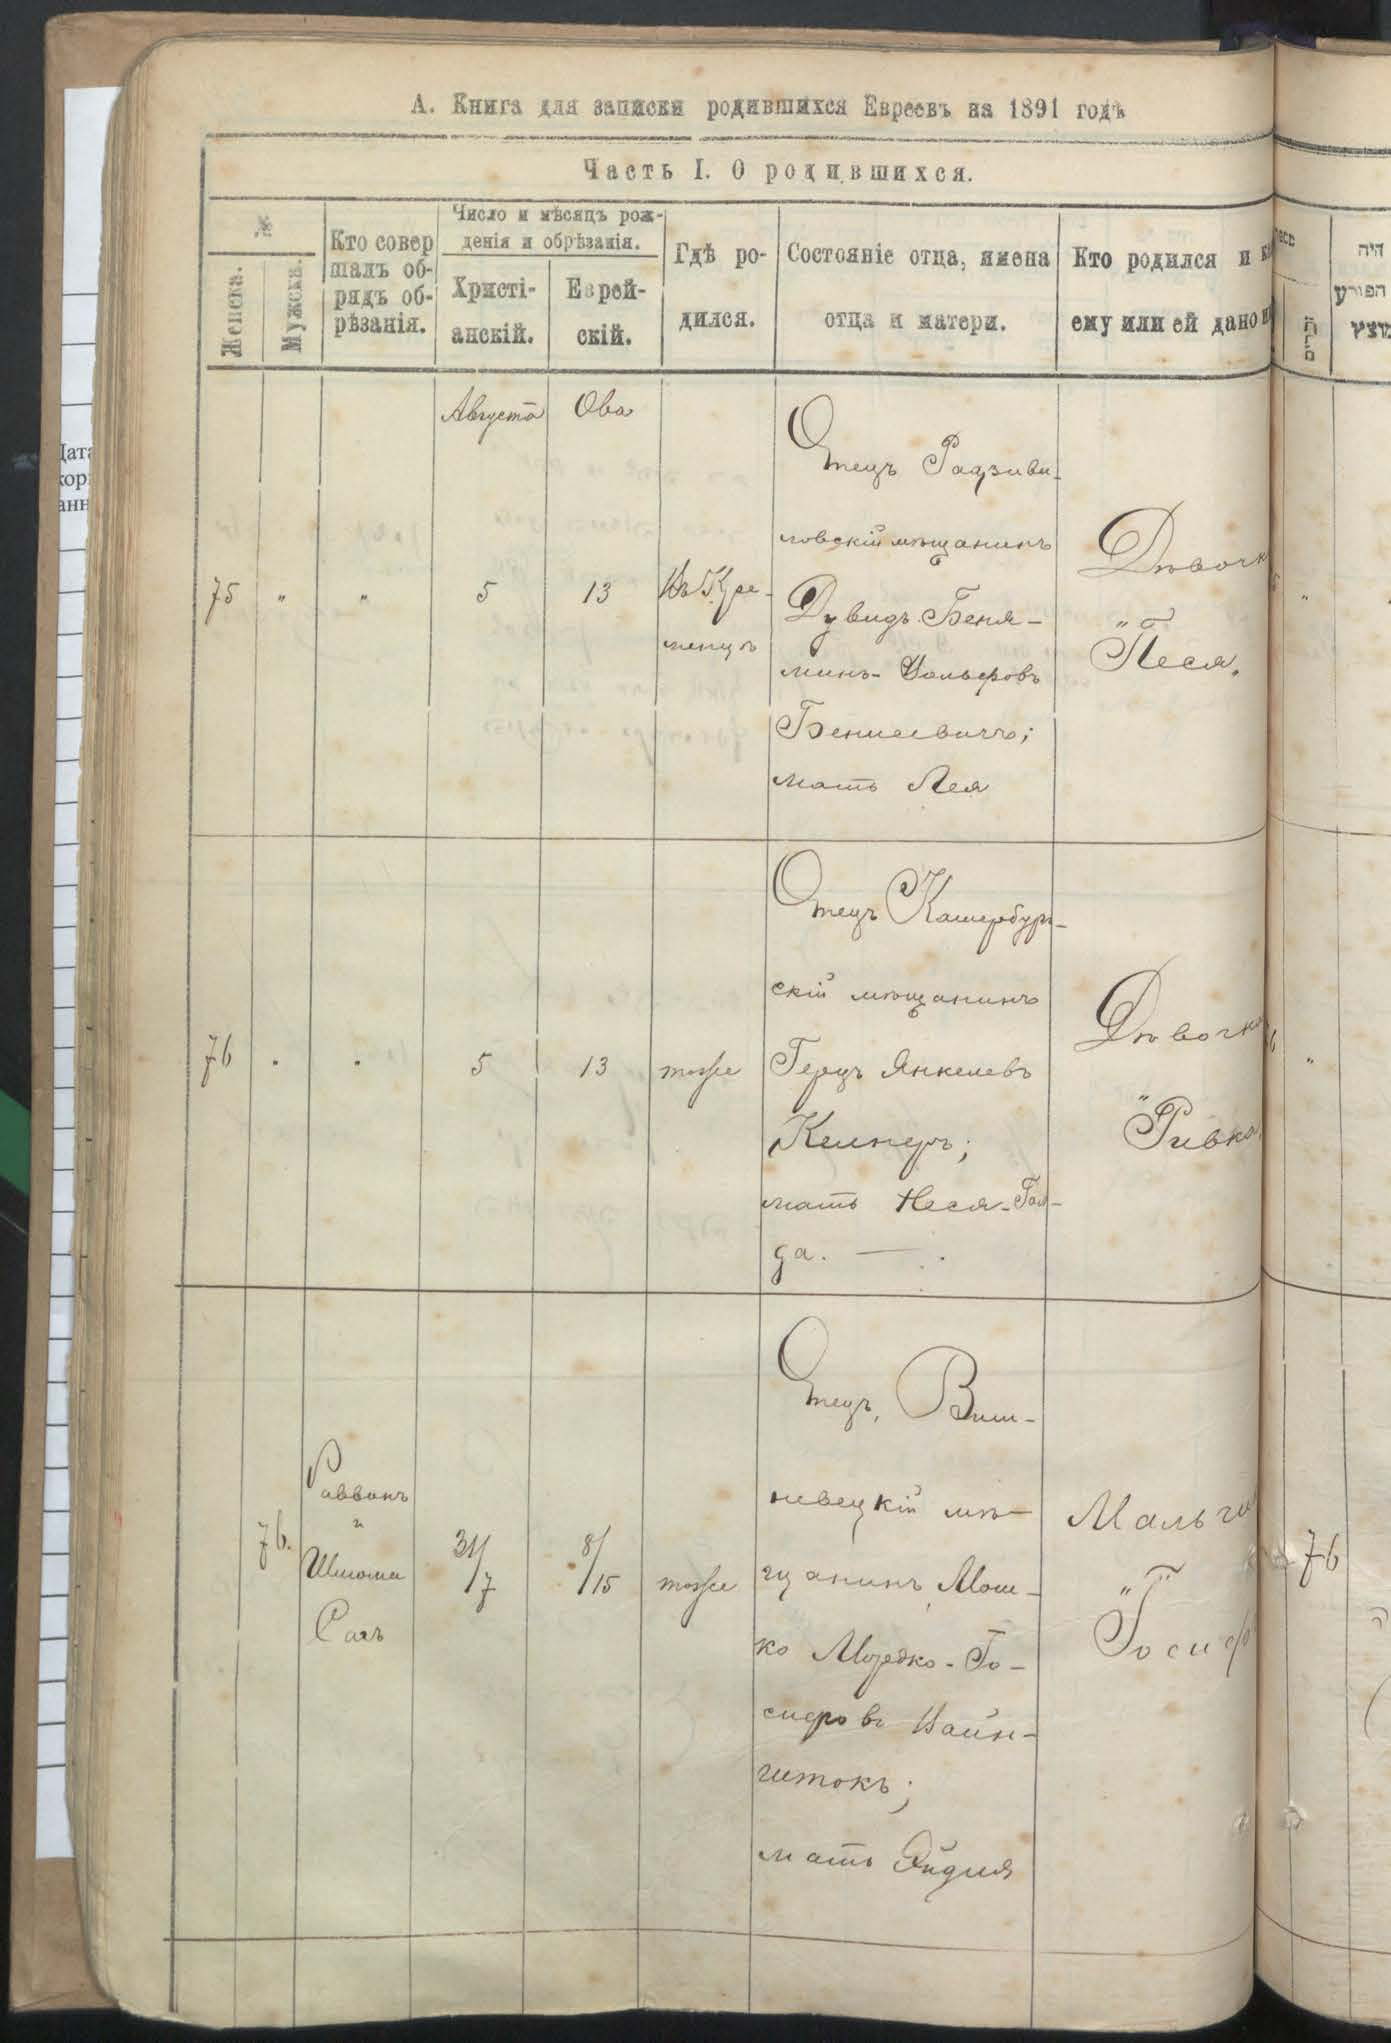 А. Книга для записки родившихся Евреевъ на 1891 годъ
Часть I. О родившихся.
№
Женска.
Мужска.
Кто совер
шалъ об-
рядъ об-
рѣзанія.
Число и мѣсяцъ рож-
денія и обрѣзанія.
Христі-
анскій.
Еврей-
скій.
Гдѣ ро-
дился.
Состояніе отца, имена
отца и матери.
Кто родился и
ему или ей дано
Августа
Ова
75
"
"
5
13
Въ Кре-
менцѣ
Отецъ Радзиви-
ловскій мѣщанинъ
Дувидъ Беня-
минъ-Вольфовъ
мать Лея
Дѣвочк
"Песя"
76
5
13
тоже
Отецъ
скій мѣщанинъ
Герцъ Янкелевъ
Келнеръ;
мать Неся-Гол-
да. — .
Дѣвочка
"Ривка
76.
Раввинъ
и
Шлома
31/7
8/15
тоже
Отецъ, Виш-
невецкій мѣ-
щанинъ Мош-
ко Мордко-Іо-
сифовъ Вайн-
штокъ;
мать
Мальчи
"Іосиф
היה
76